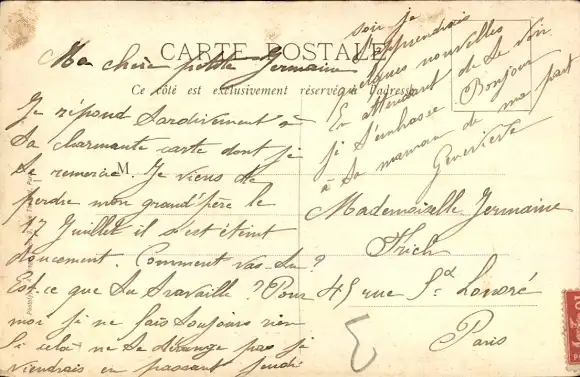 CARTE POSTALE
Ce côté est exclusivement réservé à l'adresse
M.
Ma chère petite Germaine
Je répond tardivement à
ta charmante carte dont je
te remercie. Je viens de
perdre mon grand'père le
17 Juillet il s'est éteint
doucement. Comment vas-tu?
Est-ce que tu travaille? Pour
moi je ne fais toujours rien
Si cela ne te dérange pas je
viendrais en passant jeudi
soir je
t'apprendrais
quelques nouvelles
En attendant de te voir
je t'embrasse Bonjour
à ta maman de ma part
Geneviève
Mademoiselle Germaine
45 rue St
Paris